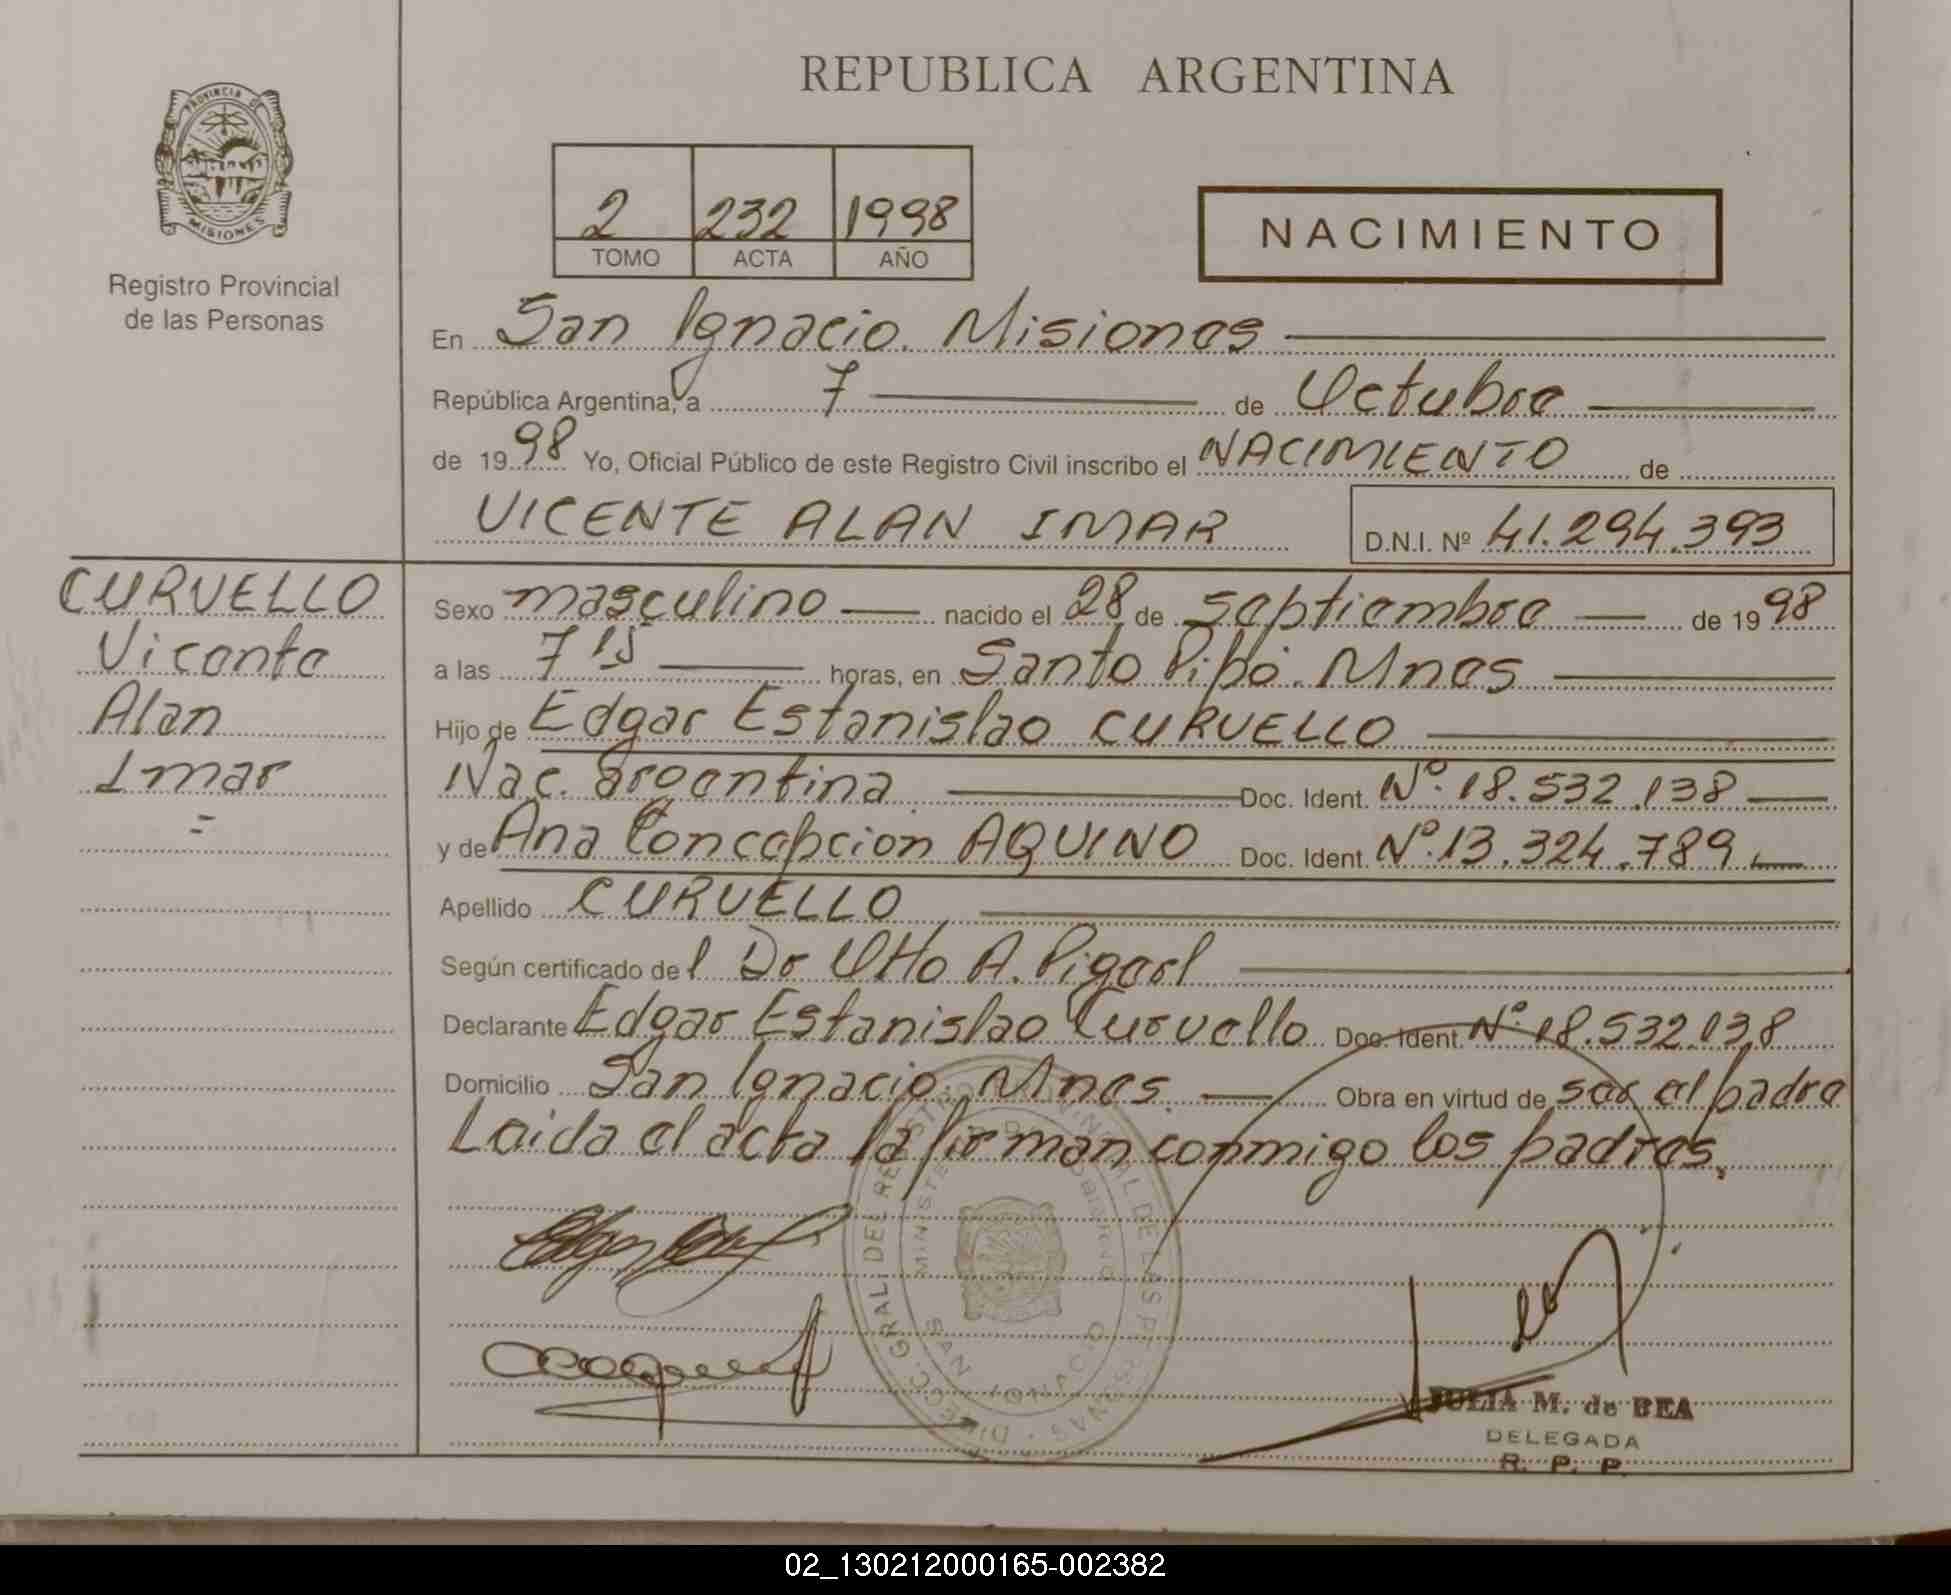 REPUBLICA ARGENTINA
PROVINCIA DE
MISIONES
Registro Provincial
de las Personas
2 232 1998
TOMO ACTA AÑO
NACIMIENTO
En San Ignacio. Misiones
República Argentina, a 7 de Octubre
de 1998 Yo, Oficial Público de este Registro Civil inscribo el NACIMIENTO de
VICENTE ALAN IMAR D.N.I. Nº 41.294.393
CURVELLO
Vicente
Alan
Imar
=
Sexo masculino nacido el 28 de septiembre de 1998
a las 7 15 horas, en Santo Pipó. Mnes
Hijo de Edgar Estanislao CURVELLO
Nac. argentina Doc. Ident. Nº. 18.532.138
y de Ana Concepcion AQUINO Doc. Ident. Nº.13.324.789
Apellido CURVELLO
Según certificado del Dr Otto A.
Declarante Edgar Estanislao Curvello Doc. Ident. Nº. 18.532.138
Domicilio San Ignacio, Mnes. Obra en virtud de ser el padre
Leida el acta la firman conmigo los padres.
DIRECC. GRAL. DEL REGISTRO
SAN IGNACIO
JULIA M. de BEA
DELEGADA
R. P. P.
02_130212000165-002382